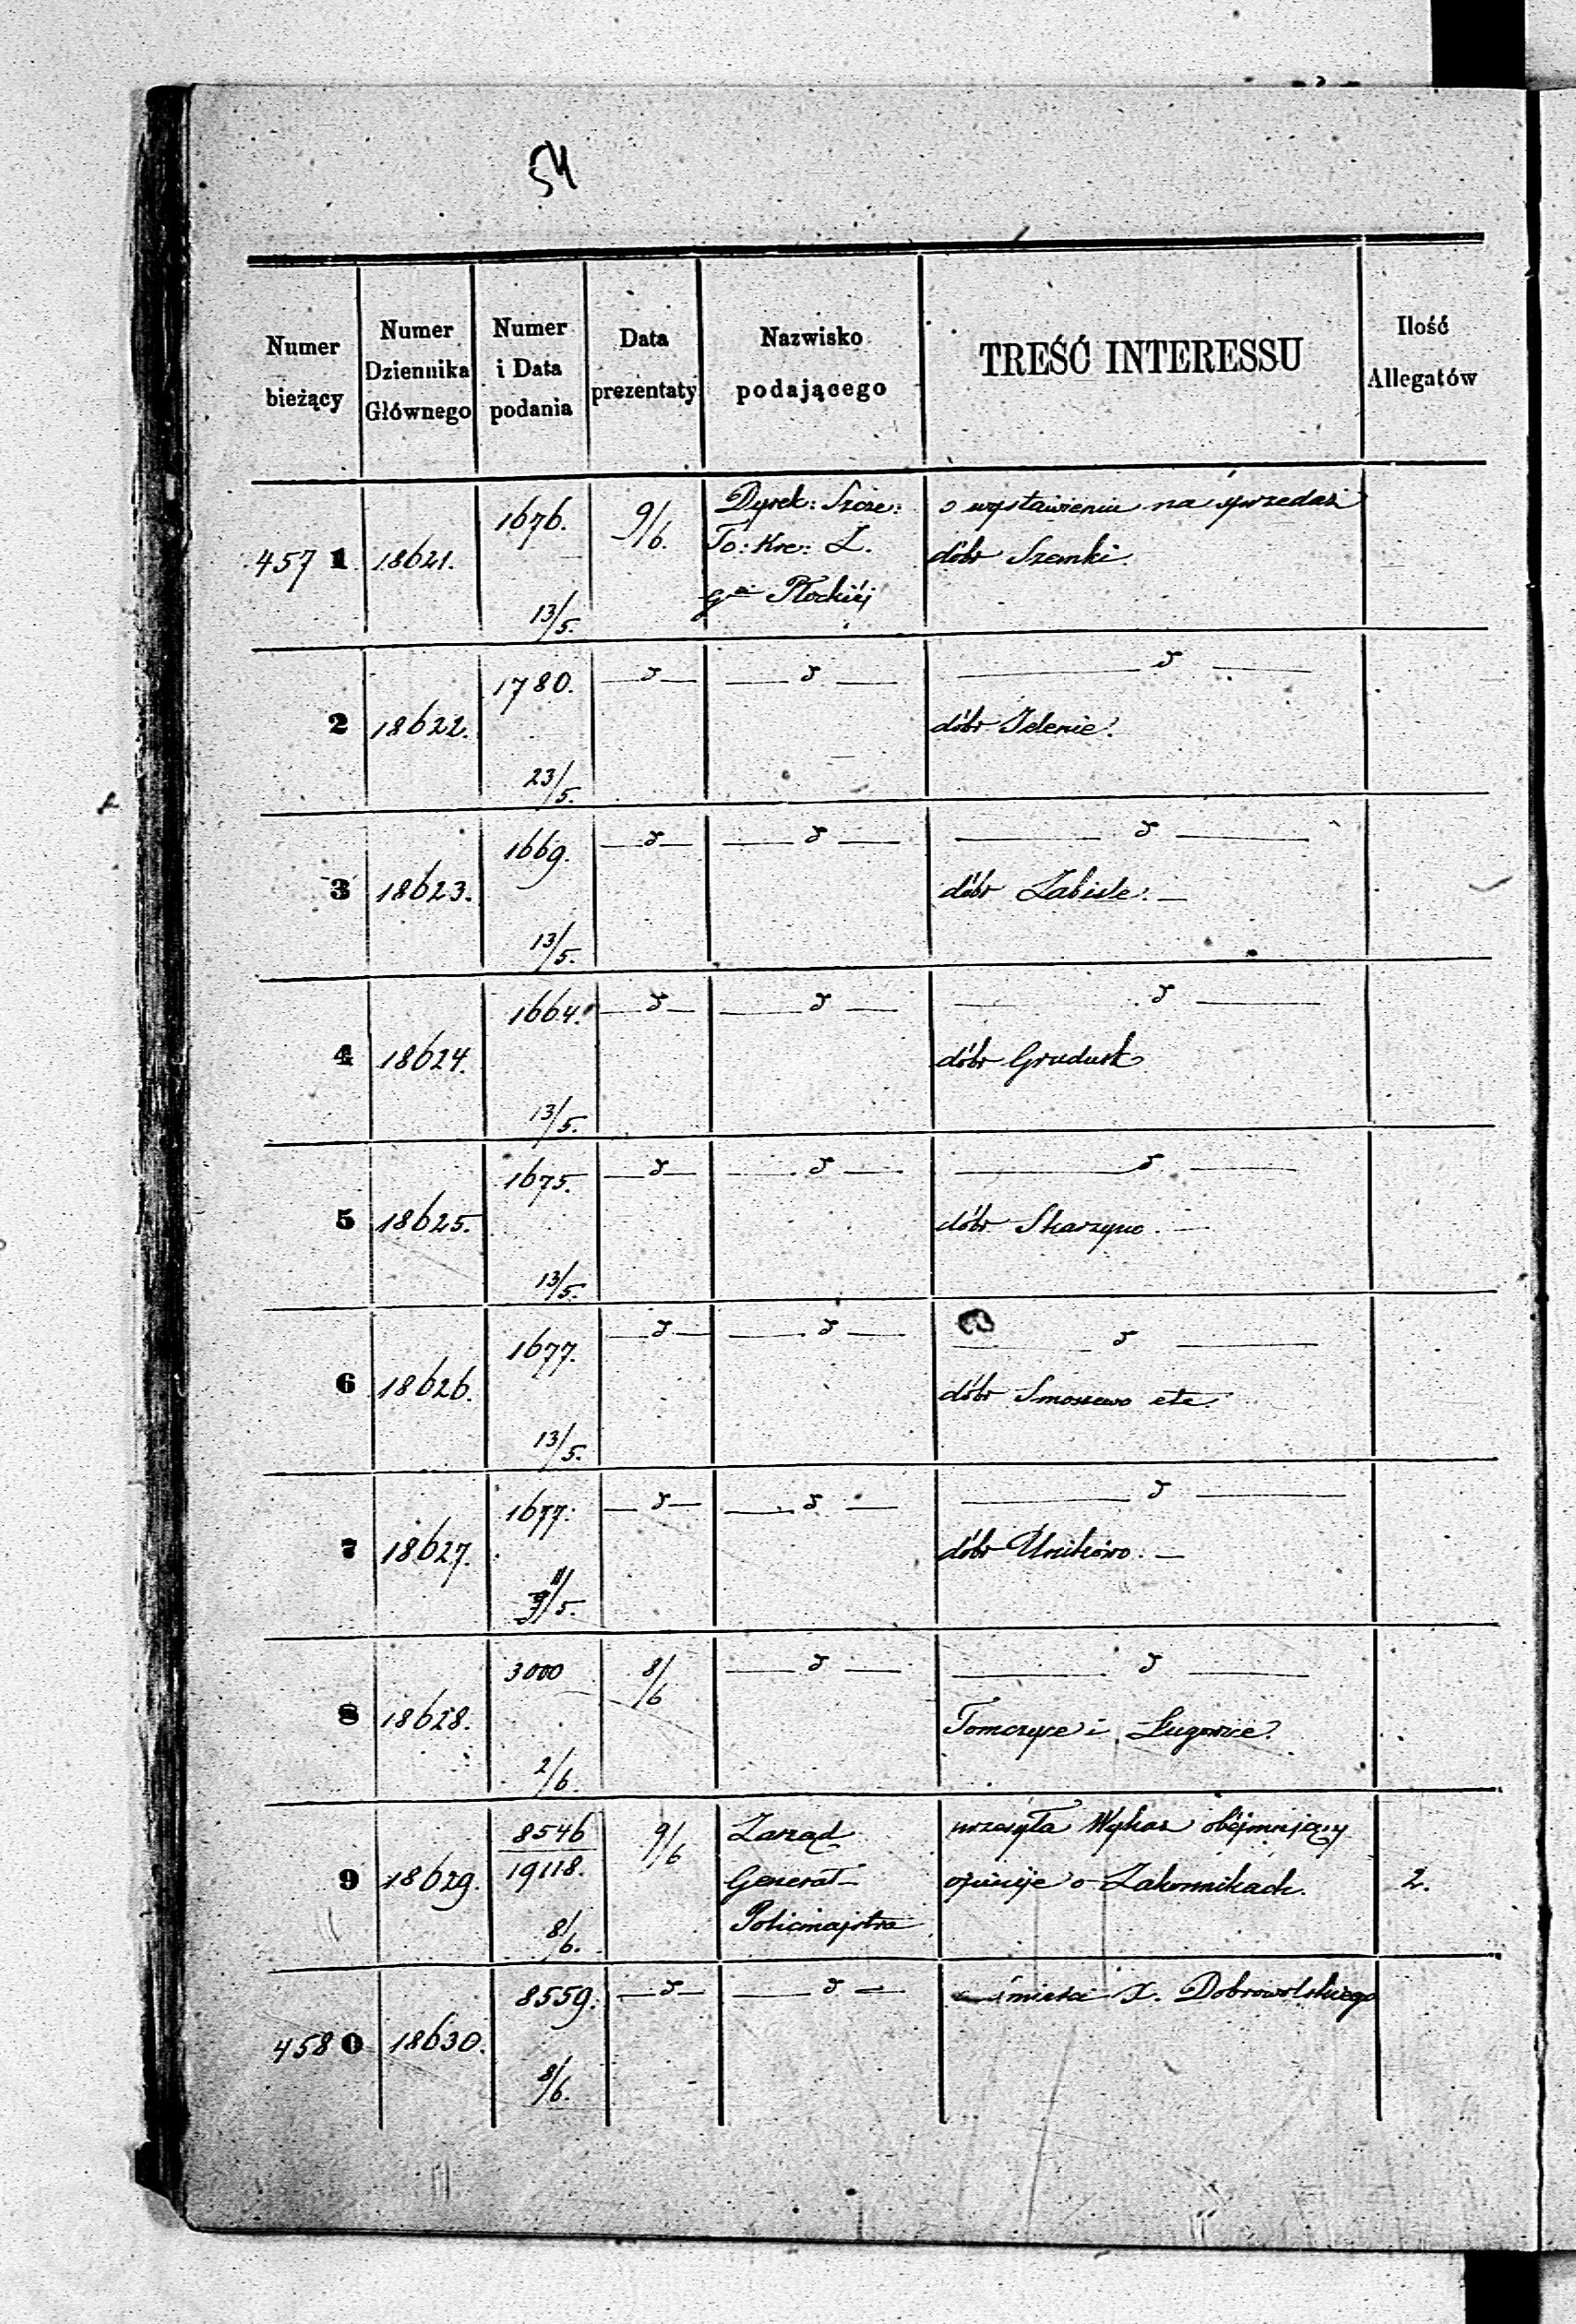 54
Numer bieżący
Numer Dziennika Głównego
Numer i Data podania
Data prezentaty
Nazwisko podającego
TREŚĆ INTERESSU
Ilość Allegatów
4571 18621. 1676. 13/5. 9/6. Dyrek: Szcze: o wystawieniu na sprzedaż
To: Kre: Z. dóbr Szemki.
gii Płockiéj
2 18622. 1780. 23/5. — d — — d — — d —
dóbr Jelenie.
3 18623. 1669. 13/5. — d — — d — — d —
dóbr —
4 18624. 1664. 13/5. — d — — d — — d —
dóbr Grudusk
5 18625. 1675. 13/5. — d — — d — — d —
dóbr Skarzyno. —
6 18626. 1677. 13/5. — d — — d — — d —
dóbr Smoszewo etc.
7 18627. 1677. 11/5. — d — — d — — d —
dóbr —
8 18628. 3000 2/6. 8/6 — d — — d —
Tomczyce i
9 18629. 8546 19118. 8/6. 9/6 Zarząd przesyła Wykaz obéjmujący 2.
Generał- opinije o Zakonnikach.
Policmajstra
4580 18630. 8559. 8/6. — d — — d — o śmierci X. Dobrowolskiego